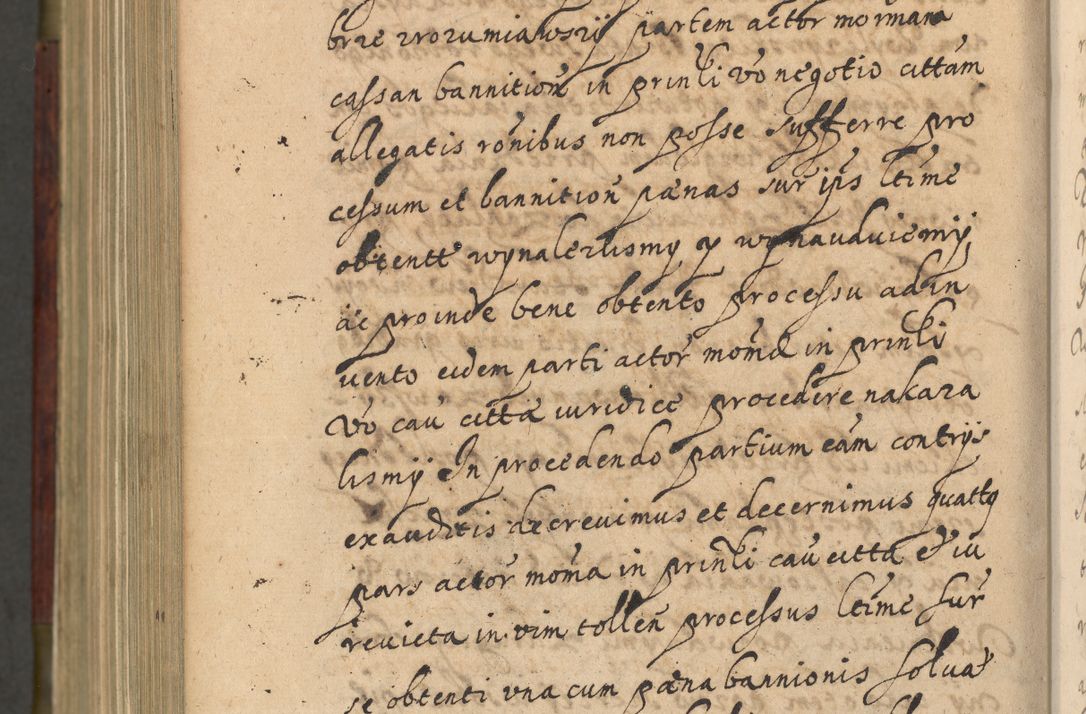 brze zrozumiawszy partem actor mormana
cassan bannition in prinli vo negotio cittam
allegatis ronibus non posse sufferre pro
cessum et bannition pænas sur ips ltime
obtentæ wynalezlismy y wynauduiemy
ac proinde bene obtento processu ad in
uento eidem parti actor moma in prinli
vo cau citta iuridice procedere nakaza
lismy In procedendo partium eam contrijs
exauditis decreuimus et decernimus quattq
pars actor moma in prinli cau citta et iu
re uicta in vim tollen processus ltime sur
se obtenti vna cum pæna bannionis soluat